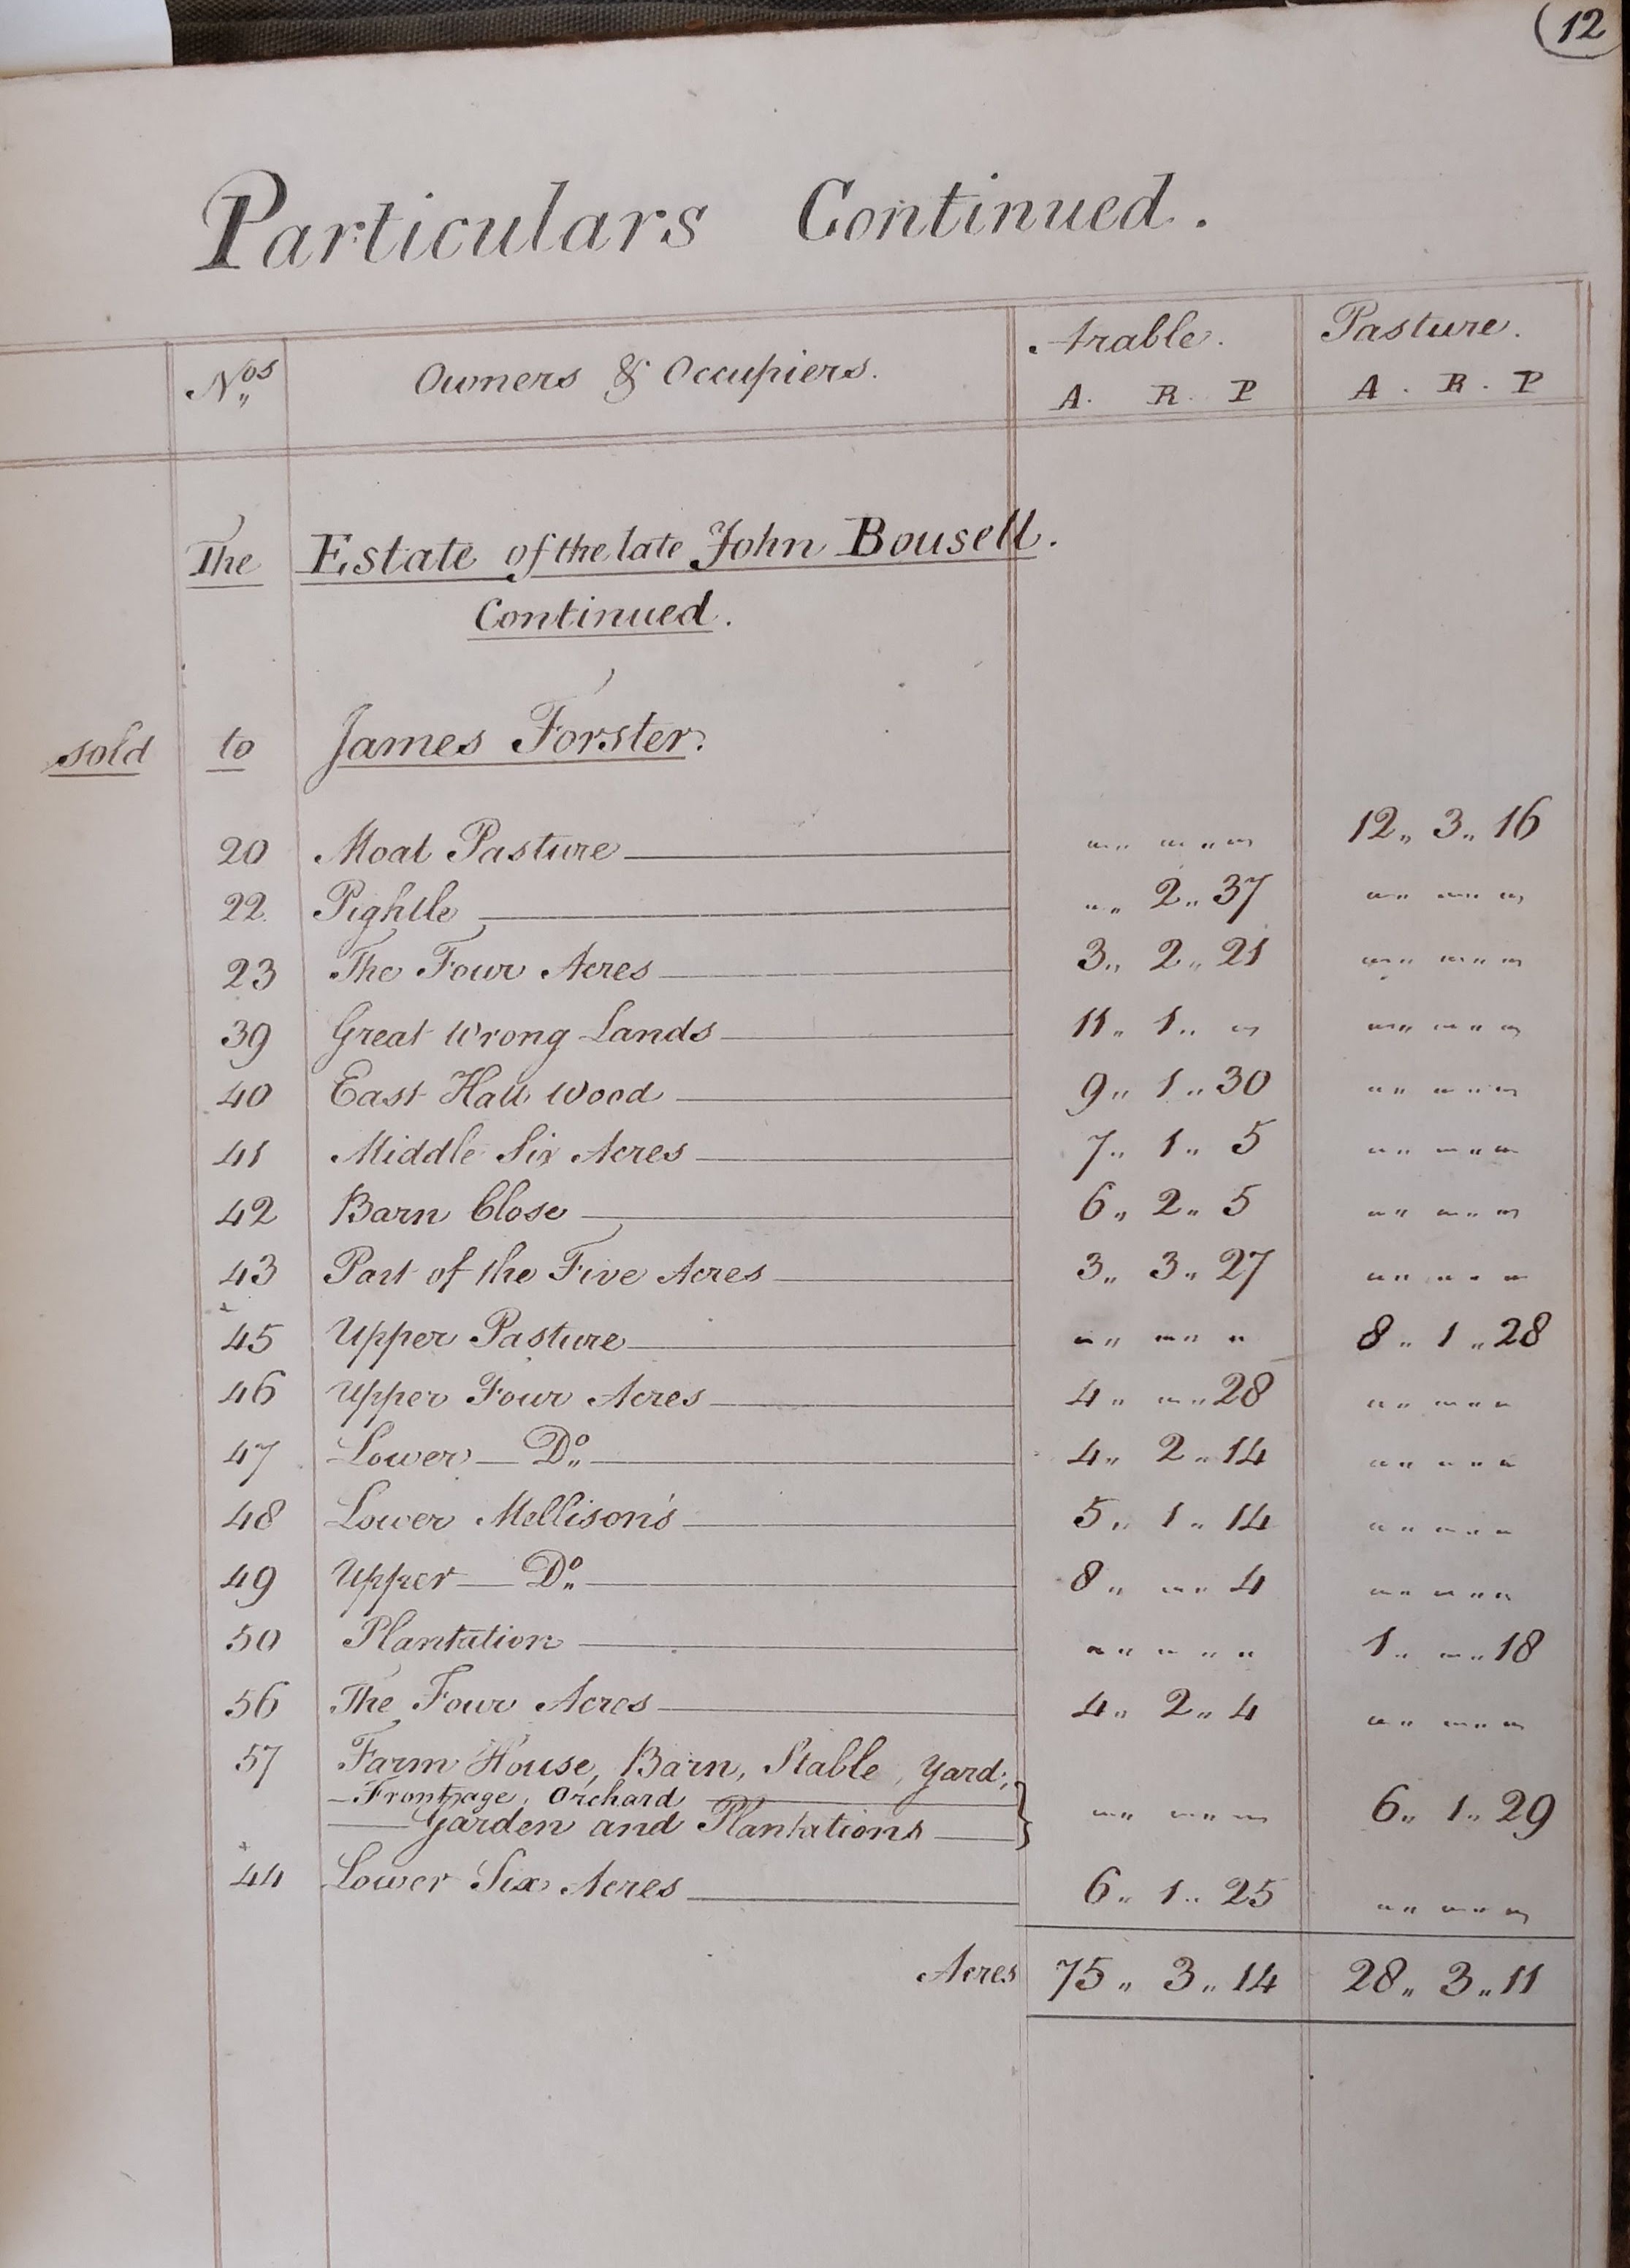 (12
Particulars Continued.
Nos Owners & Occupiers. Arable. Pasture.
A. R. P A. R. P
The Estate of the late John Bousell.
Continued.
sold to James Forster.
20 Moat Pasture „ „ „ 12„ 3„ 16
22 Pightle „ 2„ 37 „ „ „
23 The Four Acres 3„ 2„ 21 „ „ „
39 Great Wrong Lands 11„ 1„ „ „ „ „
40 East Hall Wood 9„ 1„ 30 „ „ „
41 Middle Six Acres 7„ 1„ 5 „ „ „
42 Barn Close 6„ 2„ 5 „ „ „
43 Part of the Five Acres 3„ 3„ 27 „ „ „
45 Upper Pasture „ „ „ 8„ 1„ 28
46 Upper Four Acres 4„ „ 28 „ „ „
47 Lower — Do. 4„ 2„ 14 „ „ „
48 Lower Mellison's 5„ 1„ 14 „ „ „
49 Upper — Do. 8„ „ 4 „ „ „
50 Plantation „ „ „ 1„ „ 18
56 The Four Acres 4„ 2„ 4 „ „ „
57 Farm House, Barn, Stable, Yard,
Frontpage, Orchard
Garden and Plantations „ „ „ 6„ 1„ 29
44 Lower Six Acres 6„ 1„ 25 „ „ „
Acres 75„ 3„ 14 28„ 3„ 11